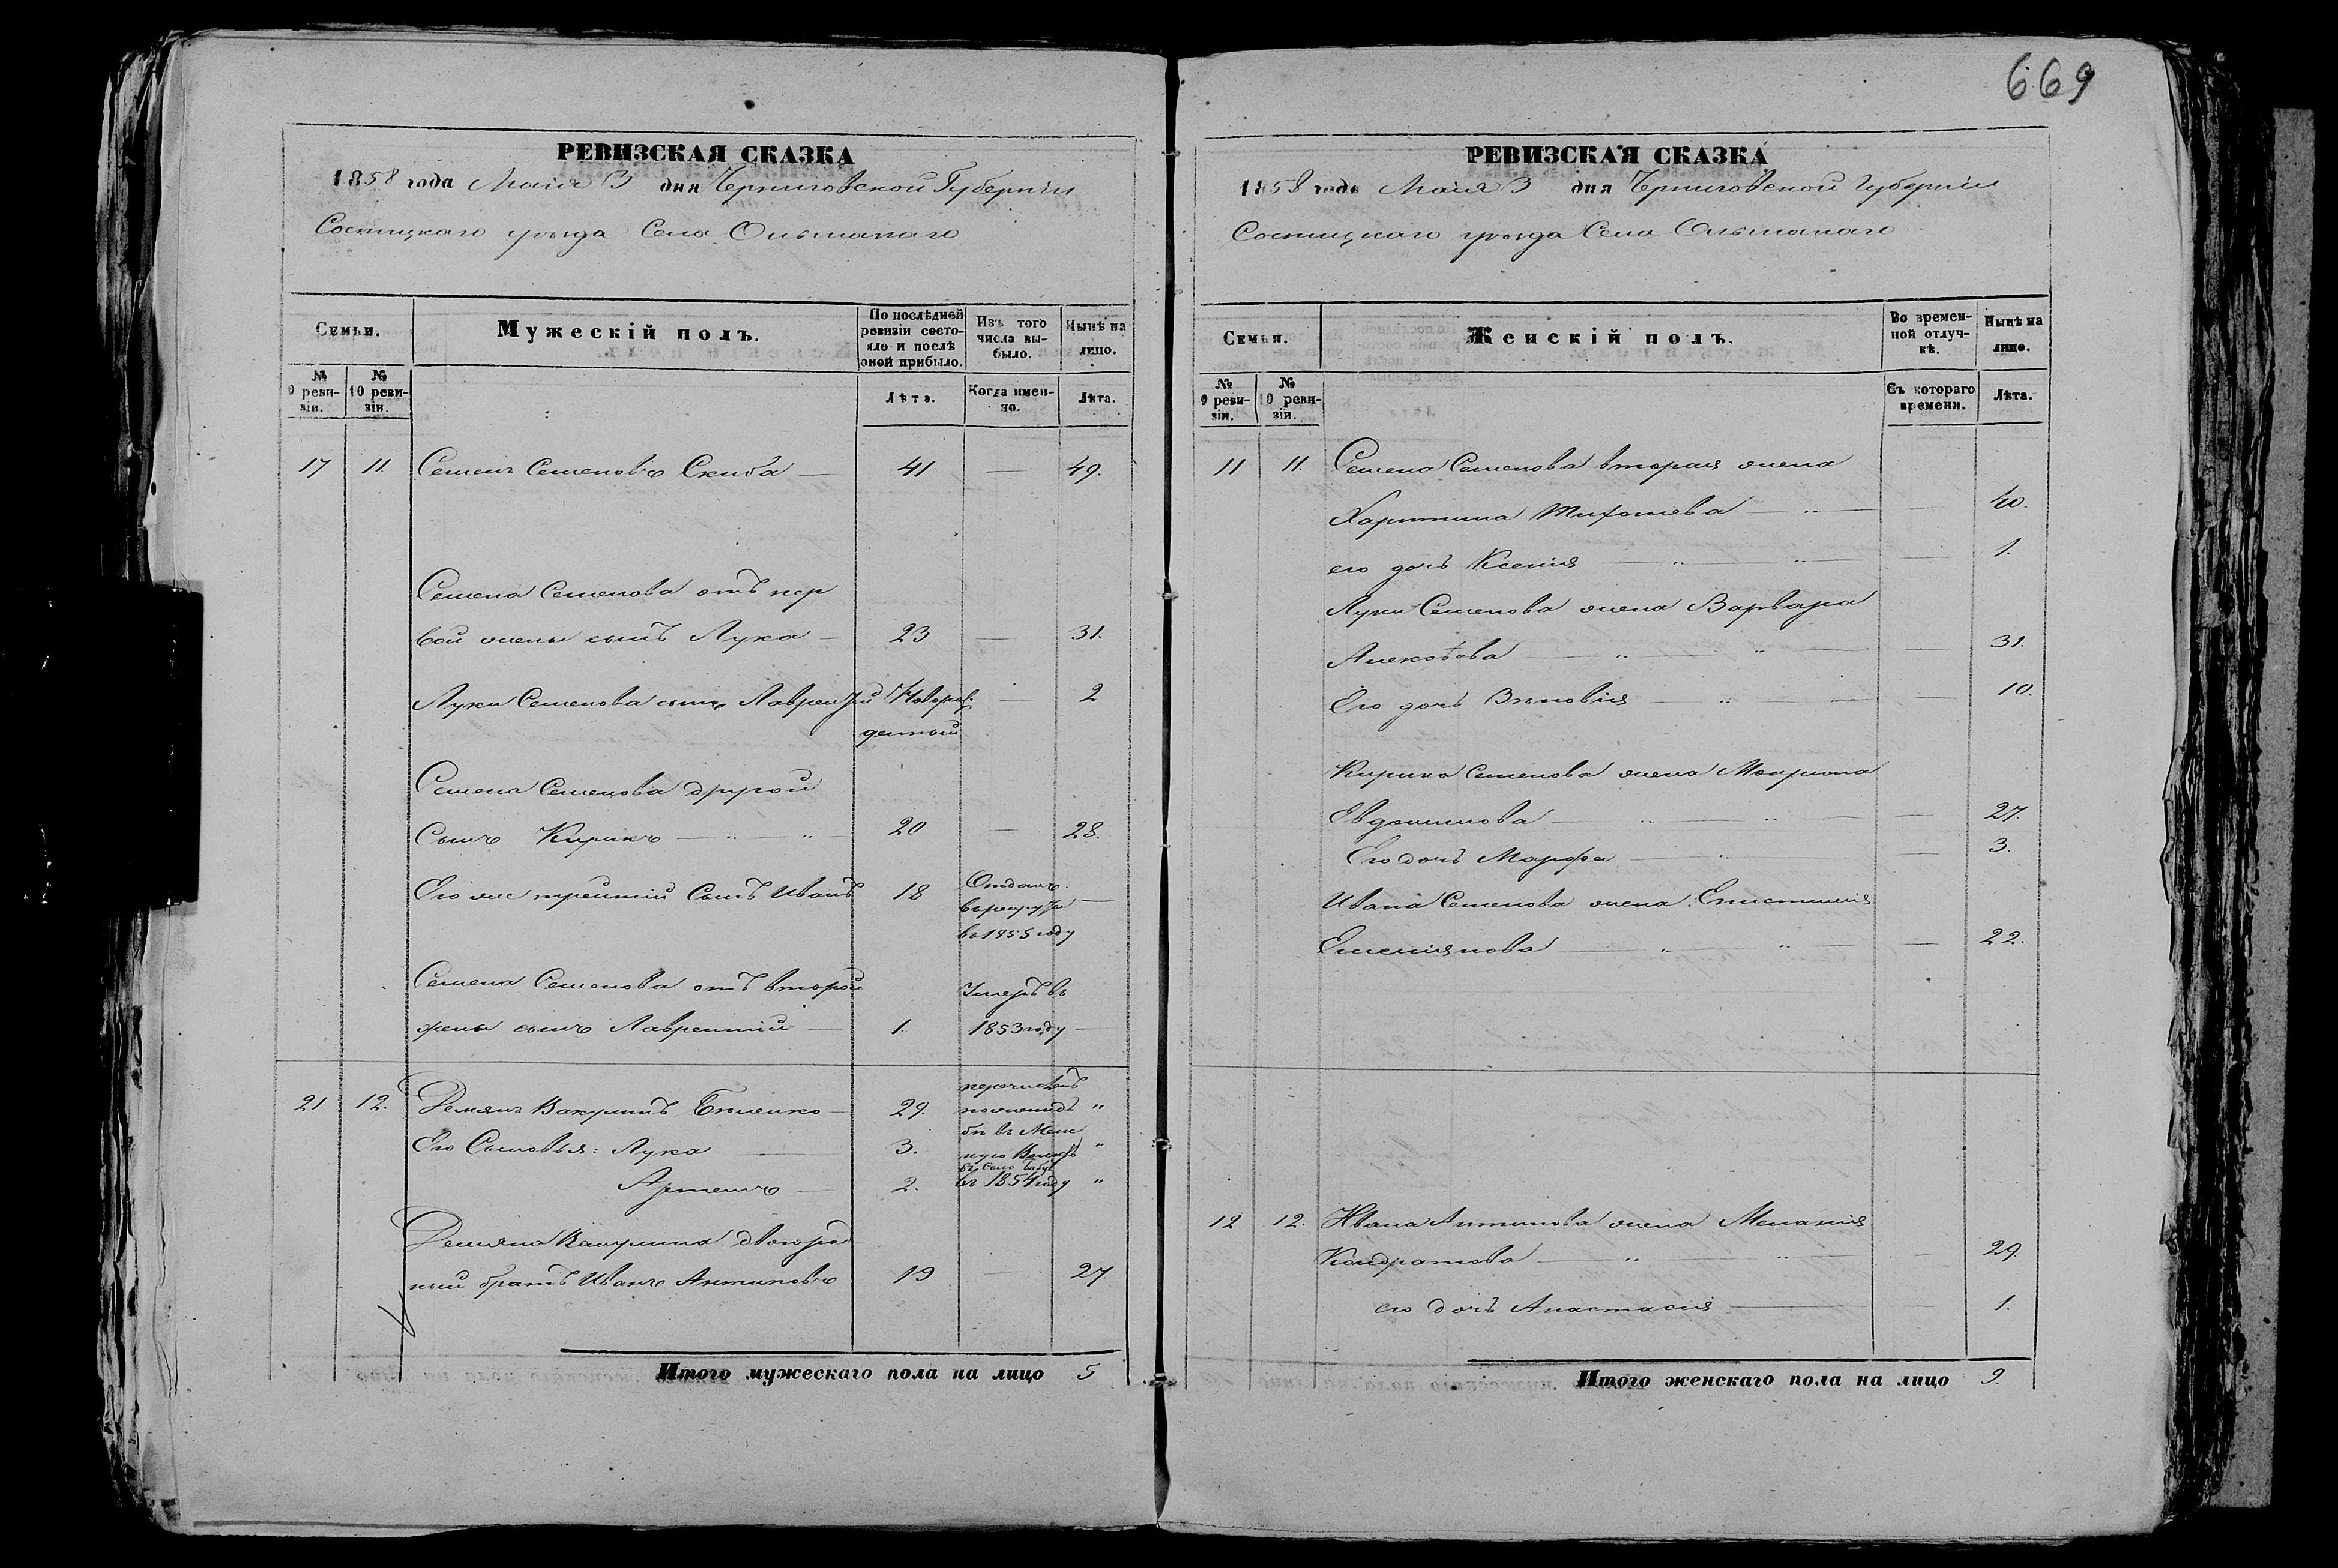 669
РЕВИЗСКАЯ СКАЗКА
1858 года Маія 3 дня Черниговской Губерніи
Сосницкаго уѣзда Села Ольшанаго
Семьи.
Мужескій полъ.
По послѣдней ревизіи состояло и послѣ оной прибыло.
Изъ того числа выбыло.
Нынѣ на лицо.
№ 9 ревизіи.
№ 10 ревизіи.
Лѣта.
Когда именно.
Лѣта.
17 11. Семенъ Семеновъ Скиба — 41 — 49.
Семена Семенова отъ пер
вой жены сынъ Лука — 23 — 31.
Луки Семенова сынъ Лаврентій Новорож — 2
денный
Семена Семенова другой
Сынъ Кирикъ — 20 — 28.
Его же третій Сынъ Иванъ 18 Отданъ
въ рекруты —
въ 1855 году
Семена Семенова отъ второй Умеръ въ
жены сынъ Лаврентій — 1. 1853 году —
21 12. Демянъ Вакулинъ — 29. перечисленъ "
Его Сыновья: Лука — 3. "
Артемъ — 2. въ 1854 году "
Демяна Вакулина двоюрод
ный братъ Иванъ Антиповъ 19 — 27
Итого мужескаго пола на лицо 5
РЕВИЗСКАЯ СКАЗКА
1858 года Маія 3 дня Черниговской Губерніи
Сосницкаго уѣзда Села Ольшанаго
Семьи.
Женскій полъ.
Во временной отлучкѣ.
Нынѣ на лицо.
№ 9 ревизіи.
№ 10 ревизіи.
Съ котораго времени.
Лѣта.
11 11. Семена Семенова вторая жена
Харитина Тимофеева — — 40.
его дочь Ксенія — — 1.
Луки Семенова жена Варвара
Алексѣева — — 31.
Его дочь Зѣновія — — 10.
Кирика Семенова жена Мокрина
Евдокимова — — 27.
Его дочь Марфа — — 3.
Ивана Семенова жена Епистимія
Емельянова — — 22.
12 12. Ивана Антипова жена Меланія
Кондратова — — 29.
его дочь Анастасія — — 1.
Итого женскаго пола на лицо 9.